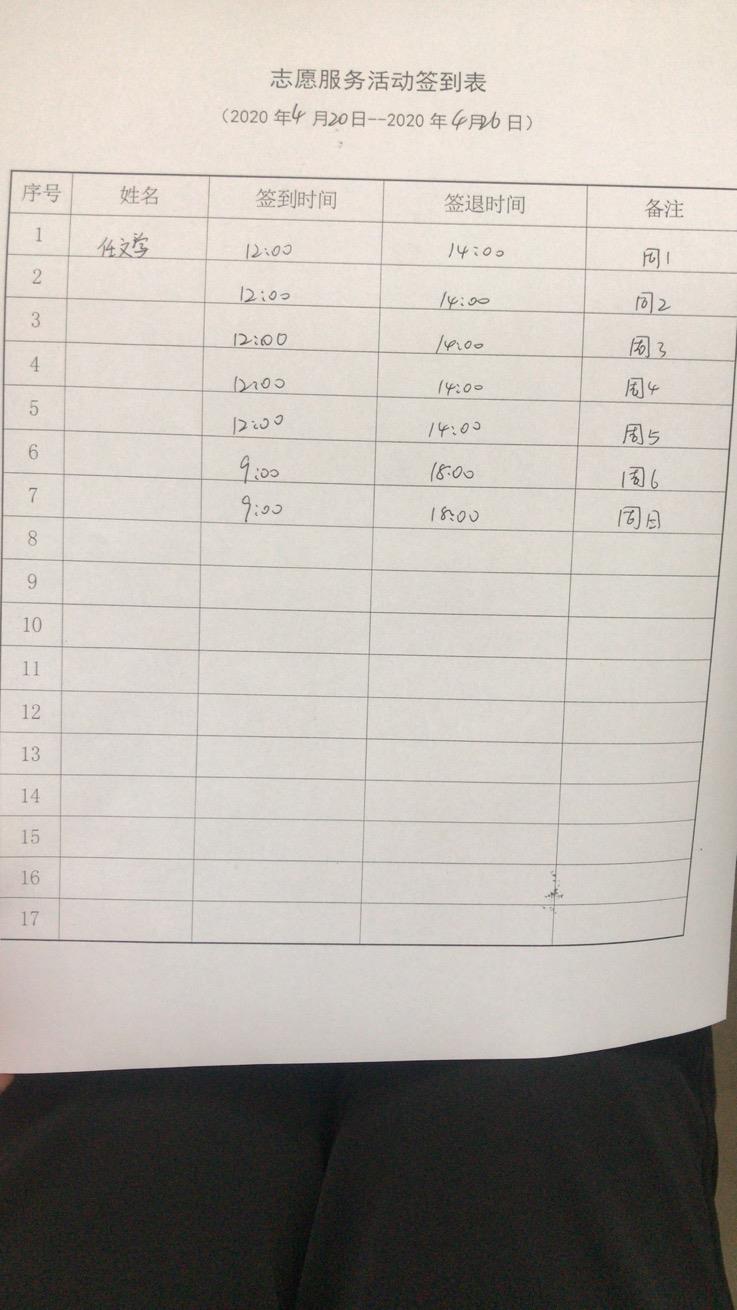 志愿服务活动签到表
（2020 年4 月20日--2020 年 4月26 日）
序号 姓名 签到时间 签退时间 备注
1 任文学 12:00 14:00 周1
2 12:00 14:00 周2
3 12:00 14:00 周3
4 12:00 14:00 周4
5 12:00 14:00 周5
6 9:00 18:00 周6
7 9:00 18:00 周日
8
9
10
11
12
13
14
15
16
17